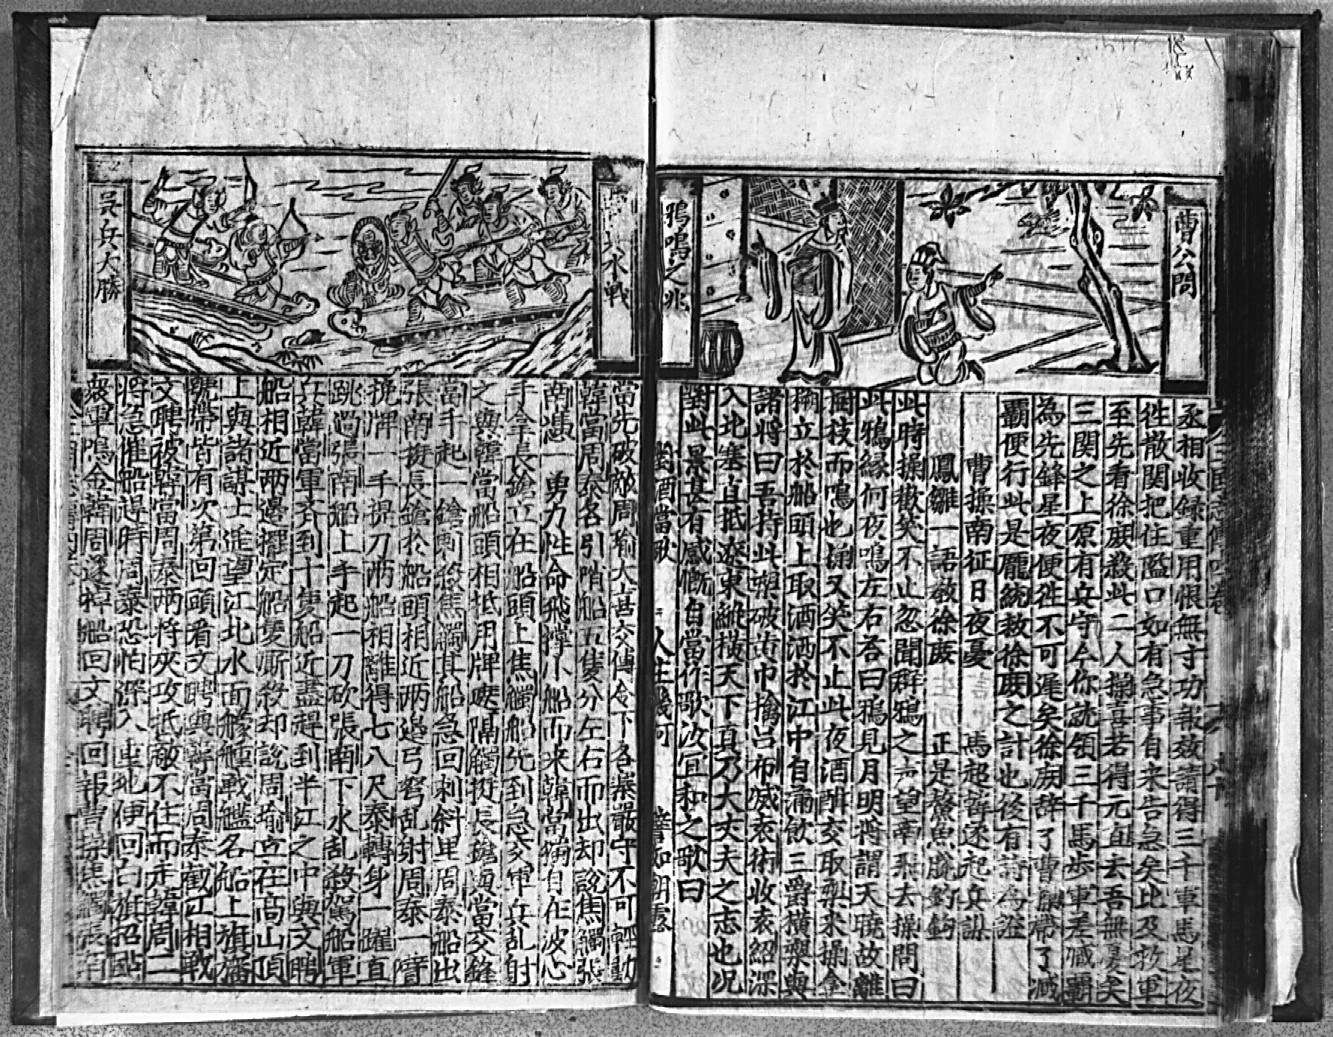 曹公問
鴉鳴之兆
丞相收録重用恨無寸功報效請得三千軍馬星夜
徃散関把住隘口如有急事自来告急矣比及救軍
至先看徐庶殺此二人操喜若得元直去吾無憂矣
三関之上原有兵守今你就領三千馬歩軍差臧霸
為先鋒星夜便徃不可遲矣徐庶辞了曹操帶了臧
霸便行此是龐統救徐庶之計也後有詩為證
曹操南征日夜憂 馬超韓遂起兵謀
鳳雛一語教徐庶 正是鰲魚脱釣鈎
此時操歡笑不止忽聞群鴉之声望南飛去操問曰
此鴉縁何夜鳴左右答曰鴉見月明将謂天曉故離
樹枝而鳴也操又笑不止此夜酒酣交取槊来操拿
槊立於船頭上取酒洒於江中自滿飲三爵橫槊與
諸將曰吾持此槊破黄巾擒吕布滅袁術收袁紹深
入北塞直抵遼東縱橫天下真乃大丈夫之志也况
對此景甚有感慨自當作歌汝宜和之歌曰
對酒當歌 人生幾何 譬如朝露
水戰
吴兵大勝
當先破敵周瑜大喜交傳令下各寨嚴守不可輕動
韓當周泰各引哨船五隻分左右而出却說焦觸張
南憑一勇力性命飛撑小船而来韓當獨自在波心
手拿長鎗立在船頭上焦觸船先到急交軍兵乱射
之與韓當船頭相抵用牌遮隔觸挺長鎗與當交鋒
當手起一鎗刺殺焦觸其船急回刺斜里周泰船出
張南挺長鎗於船頭相近兩邉弓弩乱射周泰一臂
挽牌一手提刀兩船相離得七八尺泰轉身一躍直
跳過張南船上手起一刀砍張南下水乱殺駕船軍
兵韓當軍又到十隻船近盡趕到半江之中與文聘
船相近兩邉擺定船隻厮殺却說周瑜立在高山頂
上與諸謀士遥望江北水面艨艟戰艦名船上旗旛
號帶皆有次第回頭看文聘與韓當周泰截江相戰
文聘被韓當周泰兩将夾攻抵敵不住而走韓周二
将急催船趕時周泰恐怕深入重地便回白旗招颭
衆軍鳴金韓周逐棹船回文聘回報曹操焦觸張南